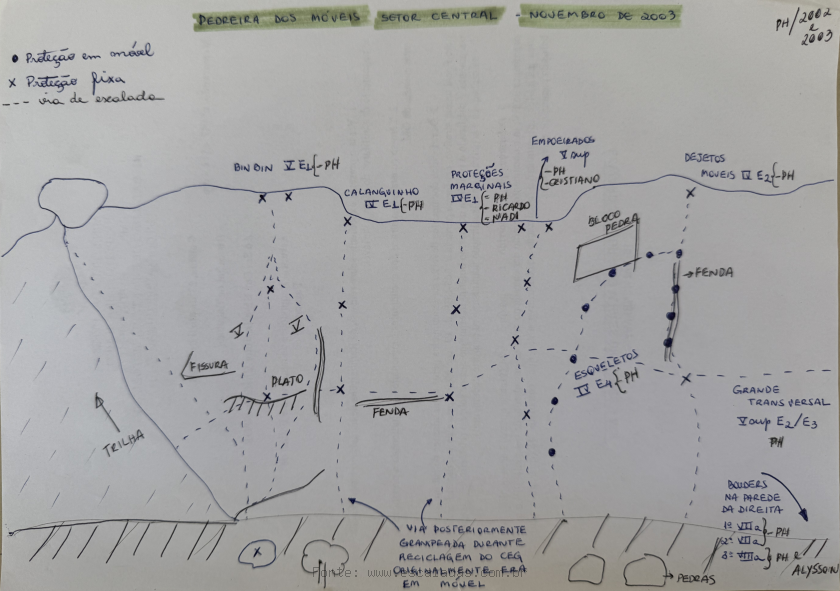 PEDREIRA DOS MÓVEIS SETOR CENTRAL - NOVEMBRO DE 2003
PH/2002
e
2003
Proteção em móvel
x Proteção fixa
--- via de escalada
BIN BIN V E1 {-PH
CALANGUINHO
IV E1 {-PH
PROTEÇÕES
MARGINAIS
IV E1 {- PH
- RICARDO
- NADI
EMPOEIRADOS
V sup
{-PH
-CRISTIANO
DEJETOS
MOVEIS IV E2 {-PH
BLOCO
PEDRA
→FENDA
V
V
FISSURA
PLATO
FENDA
TRILHA
ESQUELETOS
IV E4 {PH
GRANDE
TRANSVERSAL
V sup E2/E3
PH
BOUDERS
NA PAREDE
DA DIREITA
1º VIIa
2º VIIa }-PH
3º VIIIa }PH e
ALYSSON
VIA POSTERIORMENTE
GRAMPEADA DURANTE
RECICLAGEM DO CEG
ORIGINALMENTE ERA
EM MÓVEL
x
→ PEDRAS
Fonte: www.escaladas.com.br